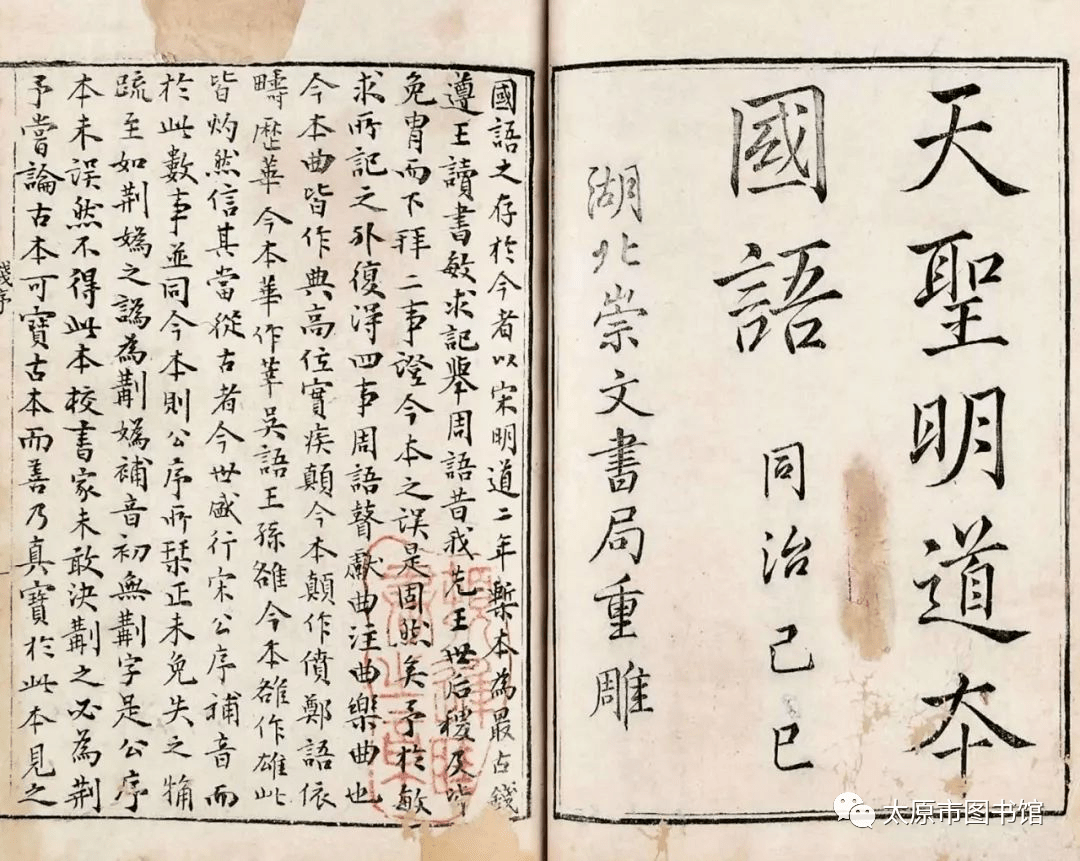 天聖明道本
國語
同治己巳
湖北崇文書局重雕
國語之存於今者以宋明道二年槧本為最古錢
遵王讀書敏求記舉周語昔我先王世后稷及皆
免胄而下拜二事證今本之誤是固然矣予於敏
求所記之外復得四事周語瞽獻曲注曲樂曲也
今本曲皆作典高位實疾顛今本顛作僨鄭語依
疇歷華今本華作莘吳語王孫雒今本雒作雄此
皆灼然信其當從古者今世盛行宋公序補音而
於此數事並同今本則公序所栞正未免失之觕
疏至如荆嬀之譌為蒯嬀補音初無蒯字是公序
本未誤然不得此本校書家未敢決蒯之必為荆
予嘗論古本可寶古本而善乃真寶於此本見之
錢序
一
太原市图书馆